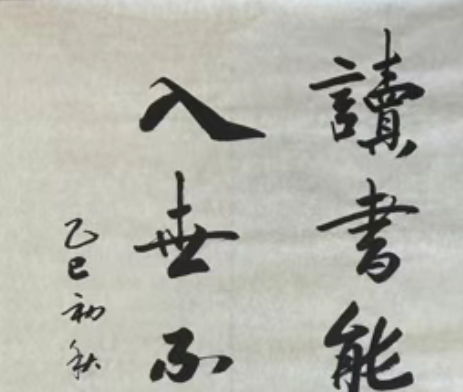 讀書能
入世不
乙巳初秋